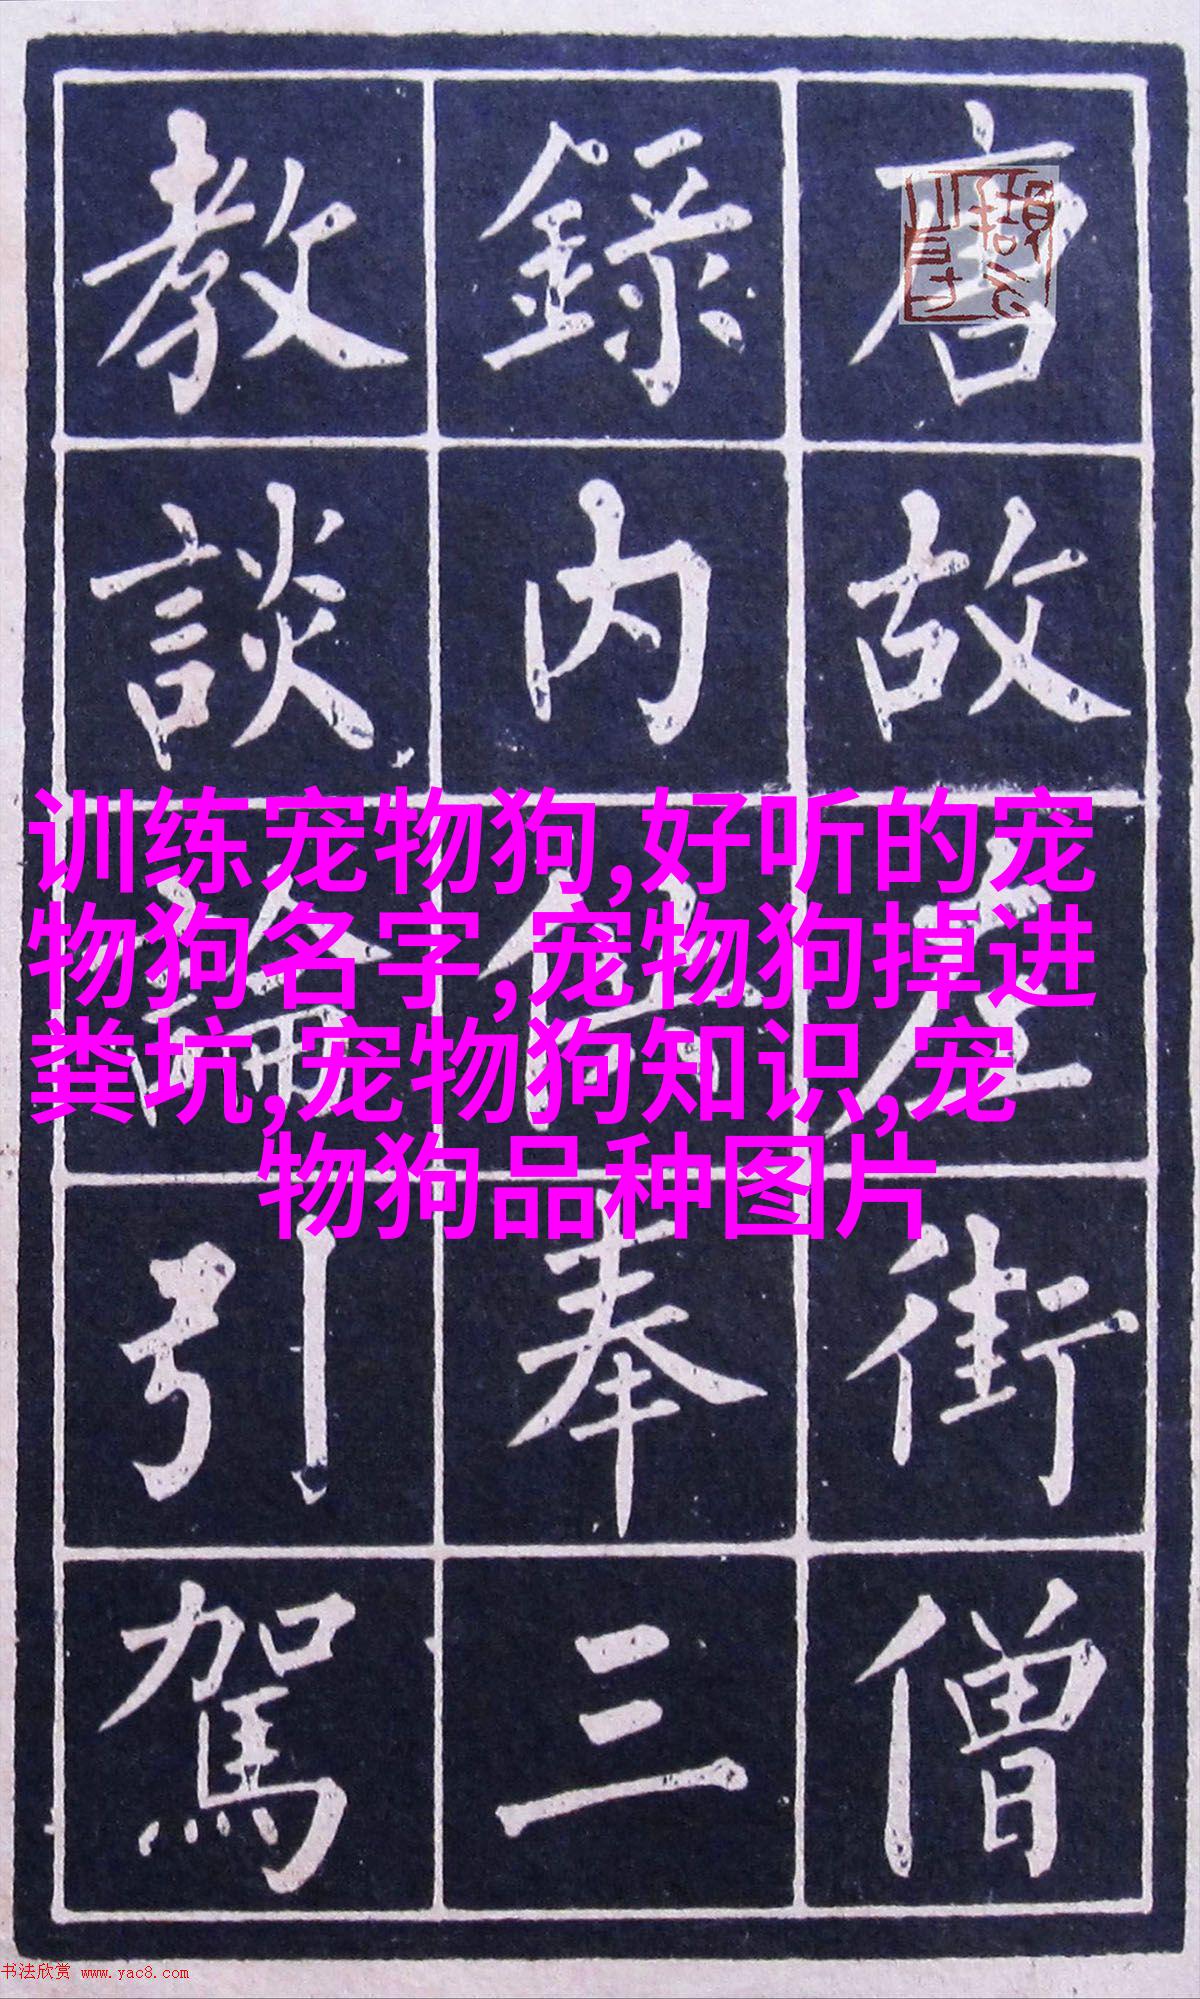 唐故左街僧
錄内供奉三
教談論引駕
训练宠物狗,好听的宠
物狗名字,宠物狗掉进
粪坑,宠物狗知识,宠
物狗品种图片
书法欣赏 www.yac8.com